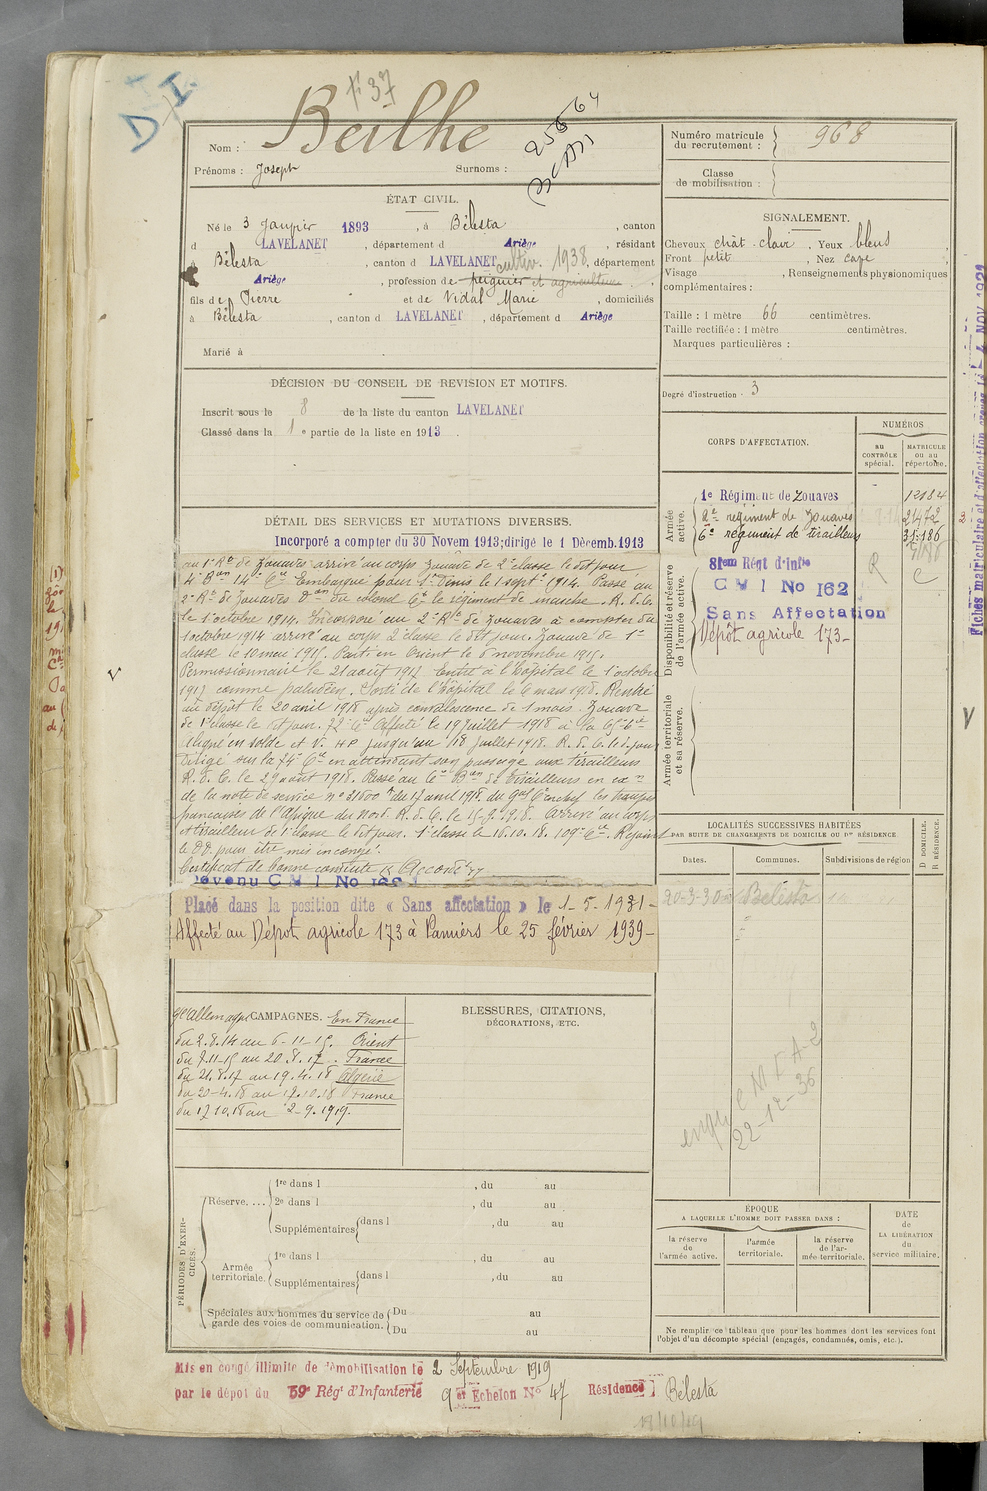 D
I.
F 37
Beilhe
25664
Nom :
Prénoms : Joseph
Surnoms :
Numéro matricule du recrutement : 968
Classe de mobilisation :
ÉTAT CIVIL.
Né le 3 Janvier 1893, à Bélesta, canton
d LAVELANET, département d Ariège, résidant
à Bélesta, canton d LAVELANET, département
cultiv. 1938
Ariège, profession de peignier et agriculteur
fils de Pierre et de Vidal Marie, domiciliés
à Bélesta, canton d LAVELANET, département d Ariège
Marié à
SIGNALEMENT.
Cheveux chât. clair. Yeux bleus
Front petit, Nez cave
Visage, Renseignements physionomiques
complémentaires :
Taille : 1 mètre 66 centimètres.
Taille rectifiée : 1 mètre centimètres.
Marques particulières :
Degré d'instruction · 3
DÉCISION DU CONSEIL DE REVISION ET MOTIFS.
Inscrit sous le 8 de la liste du canton LAVELANET
Classé dans la 1e partie de la liste en 1913.
CORPS D'AFFECTATION.
NUMÉROS
AU CONTRÔLE spécial.
MATRICULE ou au répertoire.
Armée active.
1e Régiment de Zouaves 12184
2e régiment de Zouaves 21472
6e régiment de tirailleurs 31.186
Disponibilité et réserve de l'armée active.
81em Régt d'Infie R
C M I No 162
Sans Affectation
Dépôt agricole 173-
Armée territoriale et sa réserve.
DÉTAIL DES SERVICES ET MUTATIONS DIVERSES.
Incorporé a compter du 30 Novem 1913; dirigé le 1 Décemb. 1913
au 1er Rt de Zouaves arrivé au corps zouave de 2e classe le dit jour
4e Bon 14e Cie Embarqué pour Tunis le 1 sept 1914. Passé au
2e Rt de Zouaves du colonel Ct le régiment de marche. R. d. C.
le 1 octobre 1914. Incorporé au 2e Rgt de Zouaves à compter du
1 octobre 1914 arrivé au corps 2e classe le dit jour. Zouave de 1e
classe le 10 mai 1915. Parti en Orient le 6 novembre 1915.
Permissionnaire le 21 août 1917. Entré à l'hôpital le 1 octobre
1917 comme paludéen. Sorti de l'hôpital le 6 mars 1918. Rentré
au dépôt le 20 avril 1918 après convalescence de 1 mois. Zouave
de 1e classe le dit jour. 72e Cie Affecté le 19 juillet 1918 à la
Aligné en solde et V. jusqu'au 18 juillet 1918. R. d. C. le d. jour
Dirigé sur la 74e Cie en attendant son passage aux tirailleurs
R. d. C. le 29 août 1918. Passé au 6e Bon de Tirailleurs en
de la note de service no 31800 du 17 avril 1918 du Gal Ct en chef les troupes
françaises de l'Afrique du Nord. R. d. C. le 15.9.1918. Arrivé au corps
et tirailleur de 1e classe le dit jour. 1e classe le 16.10.18. 109e Cie. Rejoint
le DD pour être mis en congé.
Certificat de bonne conduite Accordé
Devenu C M I No 162
Placé dans la position dite « Sans affectation » le 1-5-1931-
Affecté au Dépôt agricole 173 à Pamiers le 25 février 1939-
LOCALITÉS SUCCESSIVES HABITÉES
PAR SUITE DE CHANGEMENTS DE DOMICILE OU DE RÉSIDENCE.
Dates.
Communes.
Subdivisions de région
D DOMICILE. R RÉSIDENCE.
20-3-30 Bélesta
enqu C M F A-2
22-12-36
CAMPAGNES.
gre Allemagne En France
du 2.8.14 au 6-11-15. Orient
du 7.11-15 au 20.8.17. France
du 21.8.17 au 19.4.18 Algérie
du 20-4.18 au 17.10.18 France
du 17.10.18 au 2-9.1919.
BLESSURES, CITATIONS,
DÉCORATIONS, ETC.
PÉRIODES D'EXERCICES.
Réserve....
1re dans l , du au
2e dans l , du au
Supplémentaires dans l , du au
Armée territoriale.
1re dans l , du au
Supplémentaires dans l , du au
Spéciales aux hommes du service de garde des voies de communication.
Du au
Du au
ÉPOQUE
A LAQUELLE L'HOMME DOIT PASSER DANS :
la réserve de l'armée active.
l'armée territoriale.
la réserve de l'armée territoriale.
DATE de LA LIBÉRATION du service militaire.
Ne remplir ce tableau que pour les hommes dont les services font
l'objet d'un décompte spécial (engagés, condamnés, omis, etc.).
Mis en congé illimité de démobilisation le 2 Septembre 1919
par le dépôt du 59e Régt d'Infanterie 9e Echelon No 47 Résidence Bélesta
18/10/19
Fiches matriculaire et d'affectation
4 NOV. 1921